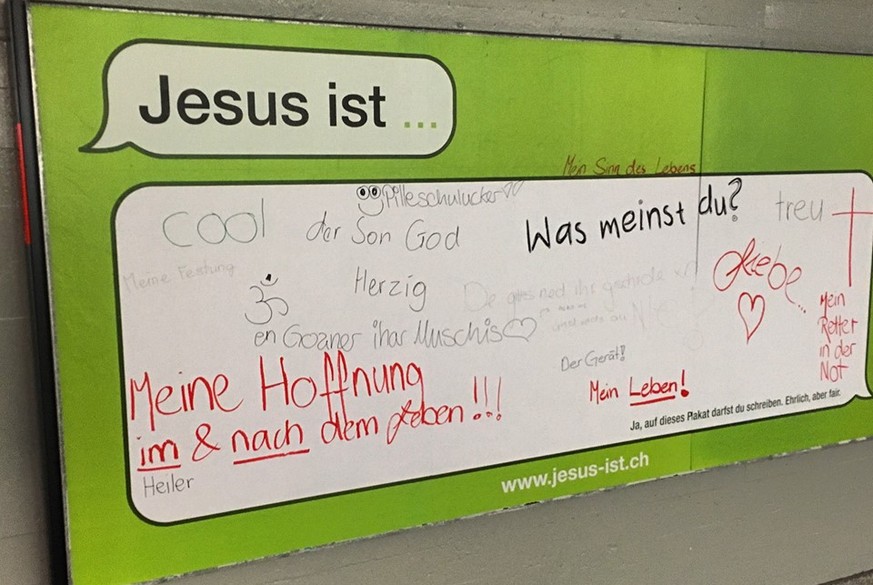 Jesus ist ...
Mein Sinn des Lebens
Pilleschulucker
cool
der Son God
Was meinst du?
treu
Meine Festung
Herzig
Liebe...
en Goaner ihar Muschis
Mein
Retter
in der
Not
Der Gerät!
Mein Leben!
Meine Hoffnung
im & nach dem Leben !!!
Heiler
Ja, auf dieses Plakat darfst du schreiben. Ehrlich, aber fair.
www.jesus-ist.ch